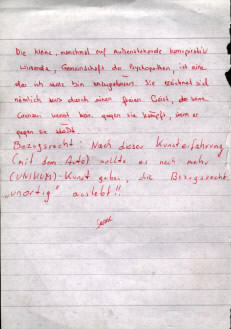 Die kleine, manchmal auf Außenstehende komparativ
wirkende, Gemeinschaft der Psychopathen, ist eine
der ich stolz bin anzugehören. Sie zeichnet sich
nämlich aus durch einen freien Geist, der seine
Grenzen kennt bzw. gegen sie kämpft, wenn er
gegen sie stößt
Bezugsrecht: Nach dieser Kunsterfahrung
(mit dem Auto) sollte es noch mehr
(UNIKUM)-Kunst geben, die Bezugsrecht
"unartig" auslebt!!